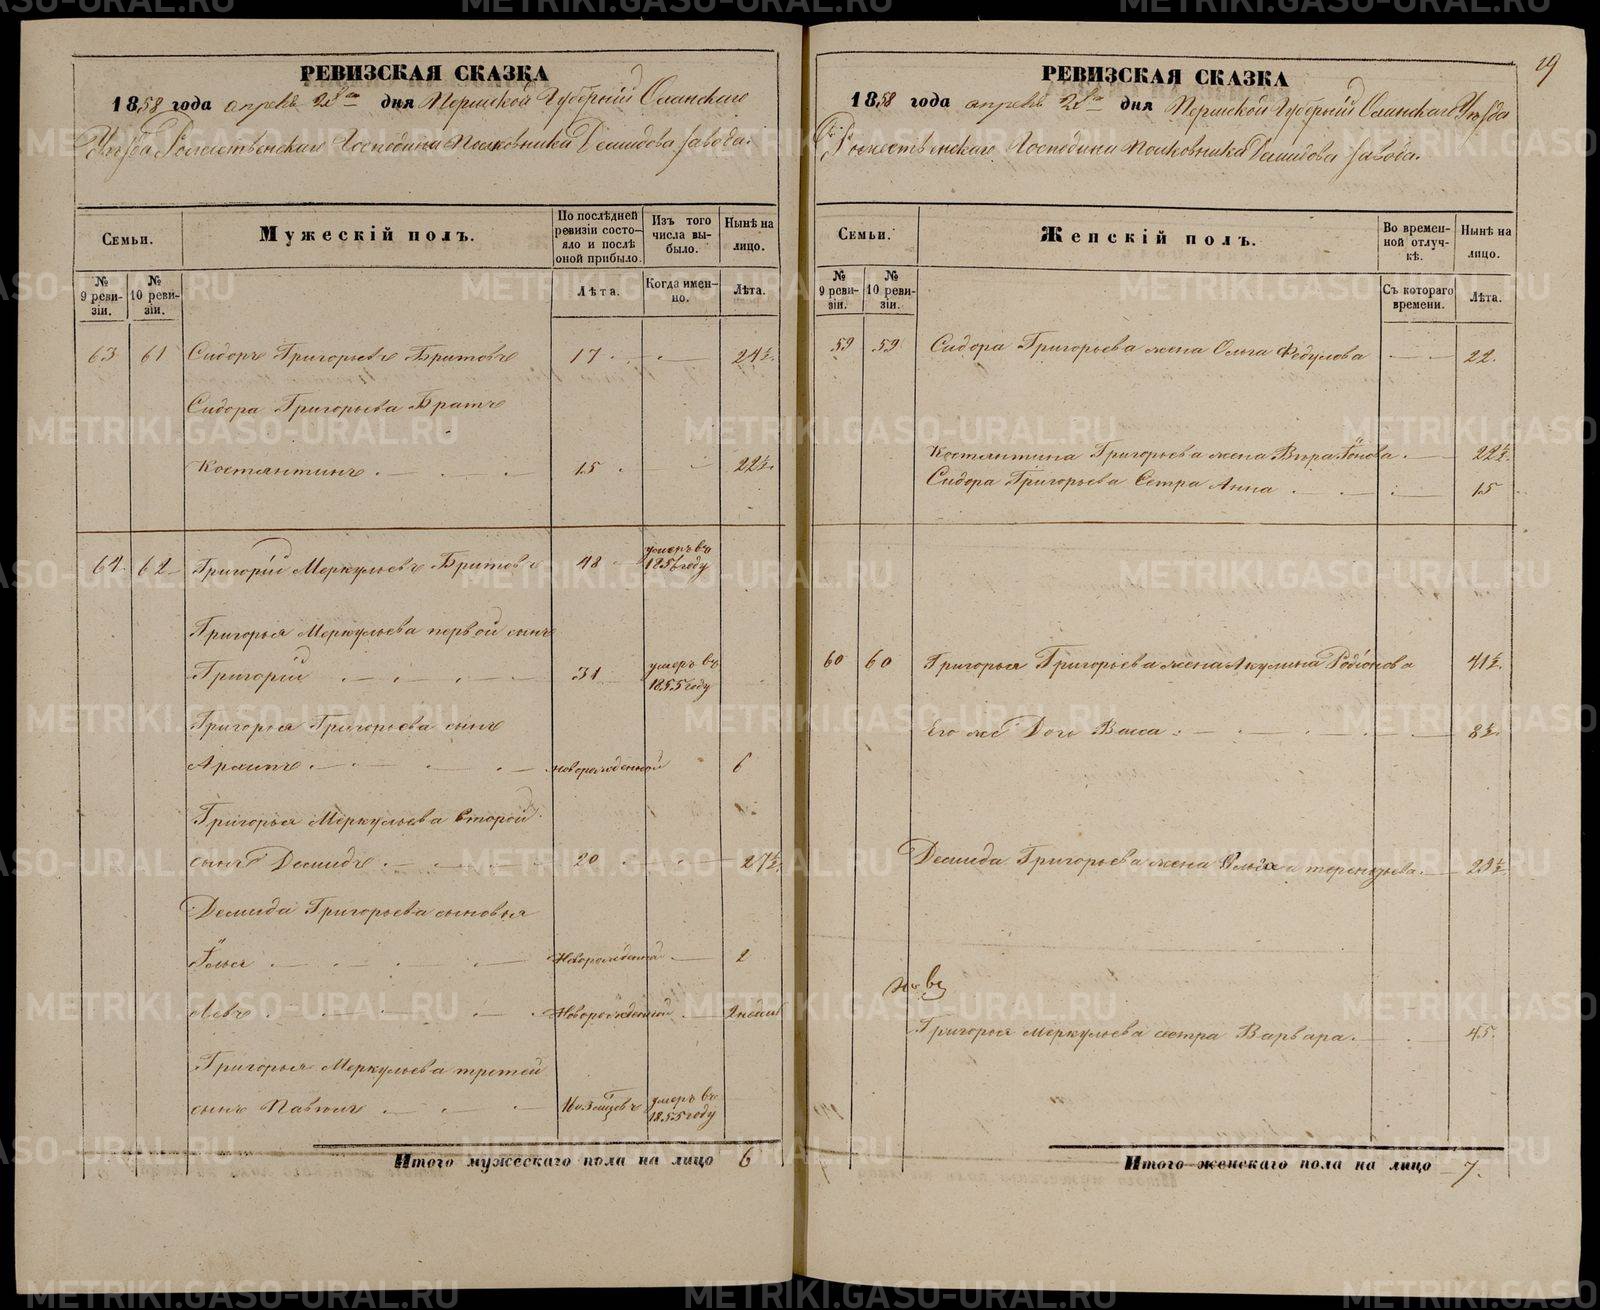 РЕВИЗСКАЯ СКАЗКА
1858 года апреля 28го дня Пермской Губернiй Оханскаго
Уѣзда Рождественскаго Господина Полковника Демидова завода.
Семьи.
Мужескій полъ.
По послѣдней ревизіи состояло и послѣ оной прибыло.
Изъ того числа выбыло.
Нынѣ на лицо.
№ 9 ревизіи.
№ 10 ревизіи.
Лѣта.
Когда именно.
Лѣта.
63 61 Сидоръ Григорьевъ Бритовъ 17 24½.
Сидора Григорьева Братъ
Костянтинъ 15 22½.
64 62 Григорiй Меркульевъ Бритовъ 48 умеръ въ 1856 году
Григорья Меркульева первой сынъ
Григорiй 31 умеръ въ 1855 году
Григорья Григорьева сынъ
Архипъ новорожденной 6
Григорья Меркульева второй
сынъ Демидъ 20 27½.
Демида Григорьева сыновья
Илья Новорожденной 2
Левъ Новорожденной 2 недели
Григорья Меркульева третей
сынъ Павтинъ умеръ въ 1855 году
Итого мужескаго пола на лицо 6
19
РЕВИЗСКАЯ СКАЗКА
1858 года апреля 28го дня Пермской Губернiй Оханскаго Уѣзда
Рожественскаго Господина Полковника Демидова завода.
Семьи.
Женскій полъ.
Во временной отлучкѣ.
Нынѣ на лицо.
№ 9 ревизіи.
№ 10 ревизіи.
Съ котораго времени.
Лѣта.
59 59 Сидора Григорьева жена Ольга Федулова 22.
Костянтина Григорьева жена Вѣра 22½.
Сидора Григорьева Сестра Анна 15
60 60 Григорья Григорьева жена Акулина Родiонова 41½.
Его же Дочь Васса 8½.
Демида Григорьева жена Ольга Терентьева 23½.
Григорья Меркульева сестра Варвара 45.
Итого женскаго пола на лицо 7.
METRIKI.GASO-URAL.RU